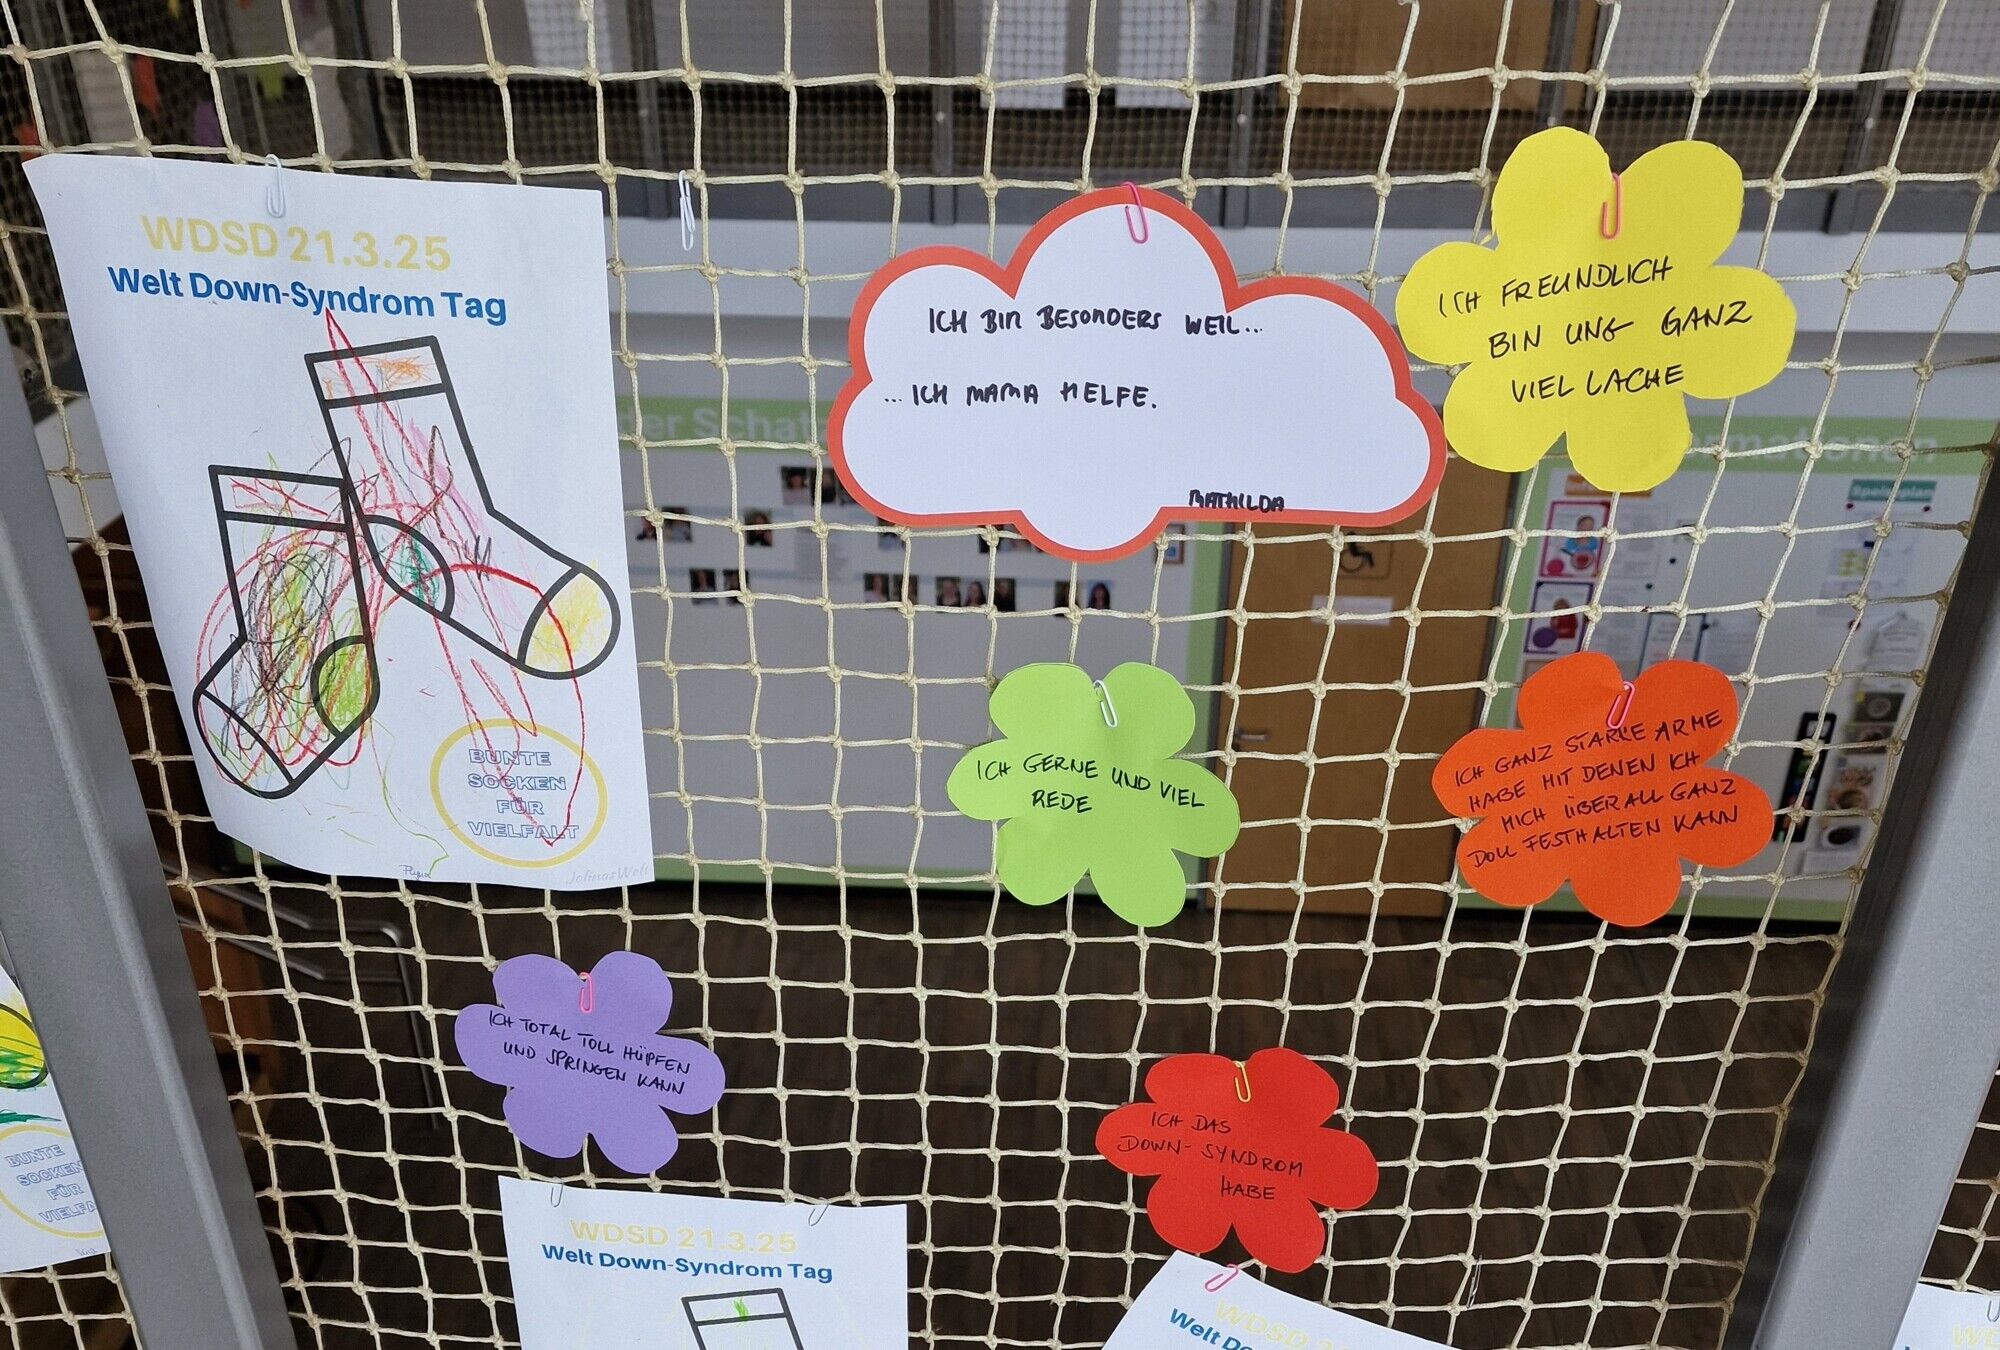 WDSD 21.3.25
Welt Down-Syndrom Tag
BUNTE
SOCKEN
FÜR
VIELFALT
JolinasWelt
ICH BIN BESONDERS WEIL...
... ICH MAMA HELFE.
MATHILDA
ICH FREUNDLICH
BIN UNG GANZ
VIEL LACHE
der Schatz
ormationen
Speiseplan
ICH GERNE UND VIEL
REDE
ICH GANZ STARKE ARME
HABE MIT DENEN ICH
MICH ÜBERALL GANZ
DOLL FESTHALTEN KANN
ICH TOTAL TOLL HÜPFEN
UND SPRINGEN KANN
ICH DAS
DOWN-SYNDROM
HABE
BUNTE
SOCKEN
FÜR
VIELFA
WDSD 21.3.25
Welt Down-Syndrom Tag
WDSD
Welt Do
WD